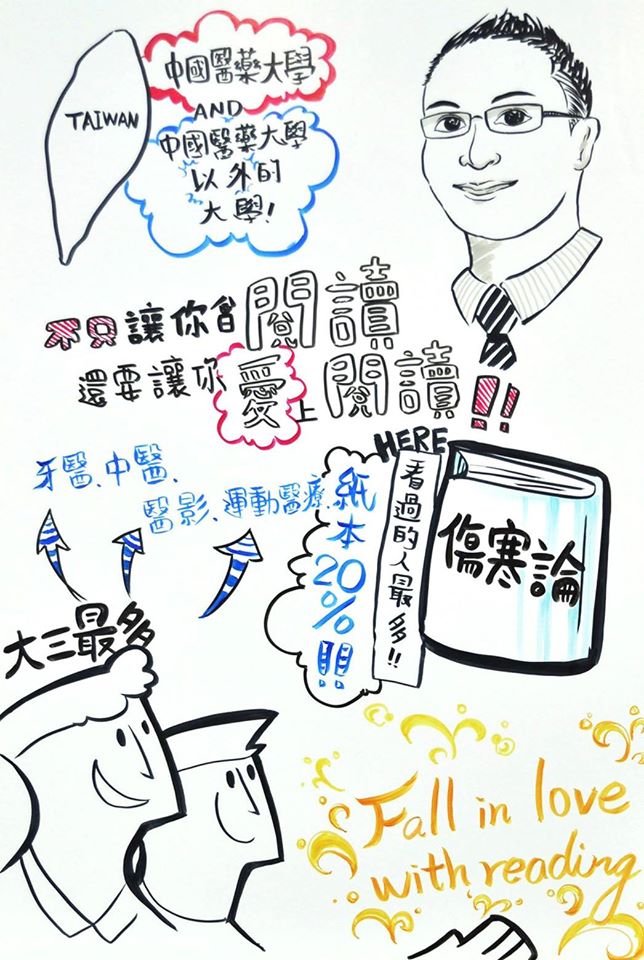 TAIWAN
中國醫藥大學
AND
中國醫藥大學
以外的
大學!
不只讓你會閱讀
還要讓你愛上閱讀!!
HERE
牙醫、中醫、
醫影、運動醫療
紙本20%!!
看過的人最多!!
傷寒論
大三最多
Fall in love
with reading